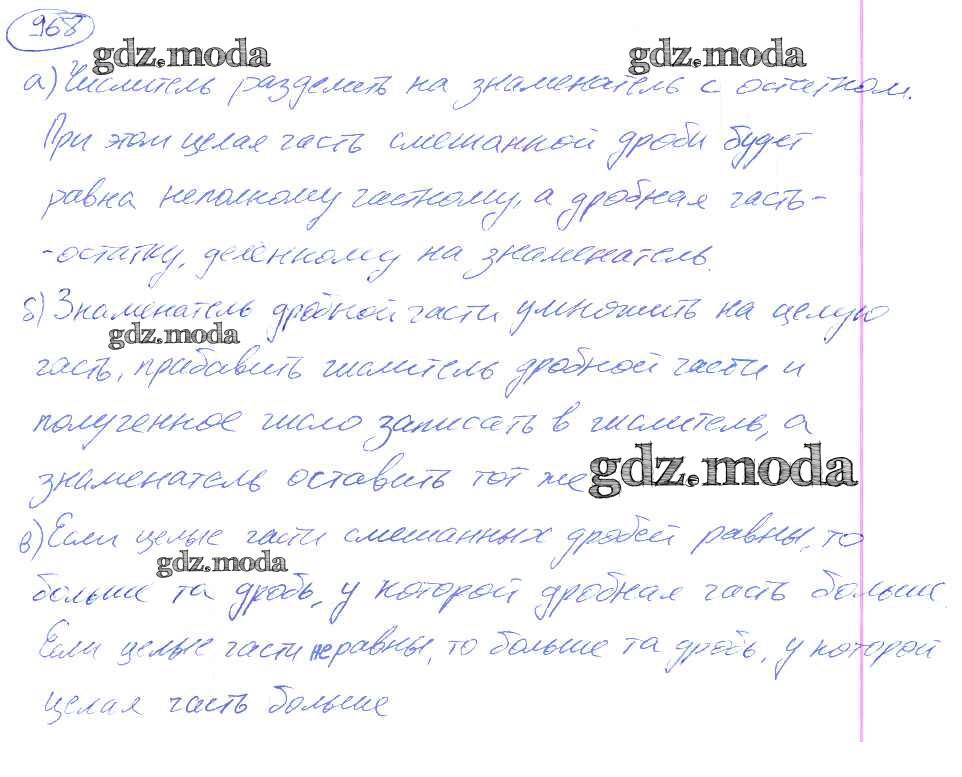 968
gdz.moda gdz.moda
а) Числитель разделить на знаменатель с остатком.
При этом целая часть смешанной дроби будет
равна неполному частному, а дробная часть-
-остатку, деленному на знаменатель.
б) Знаменатель дробной части умножить на целую
gdz.moda
часть, прибавить числитель дробной части и
полученное число записать в числитель, а
знаменатель оставить тот же gdz.moda
в) Если целые части смешанных дробей равны, то
gdz.moda
больше та дробь, у которой дробная часть больше.
Если целые части не равны, то больше та дробь, у которой
целая часть больше